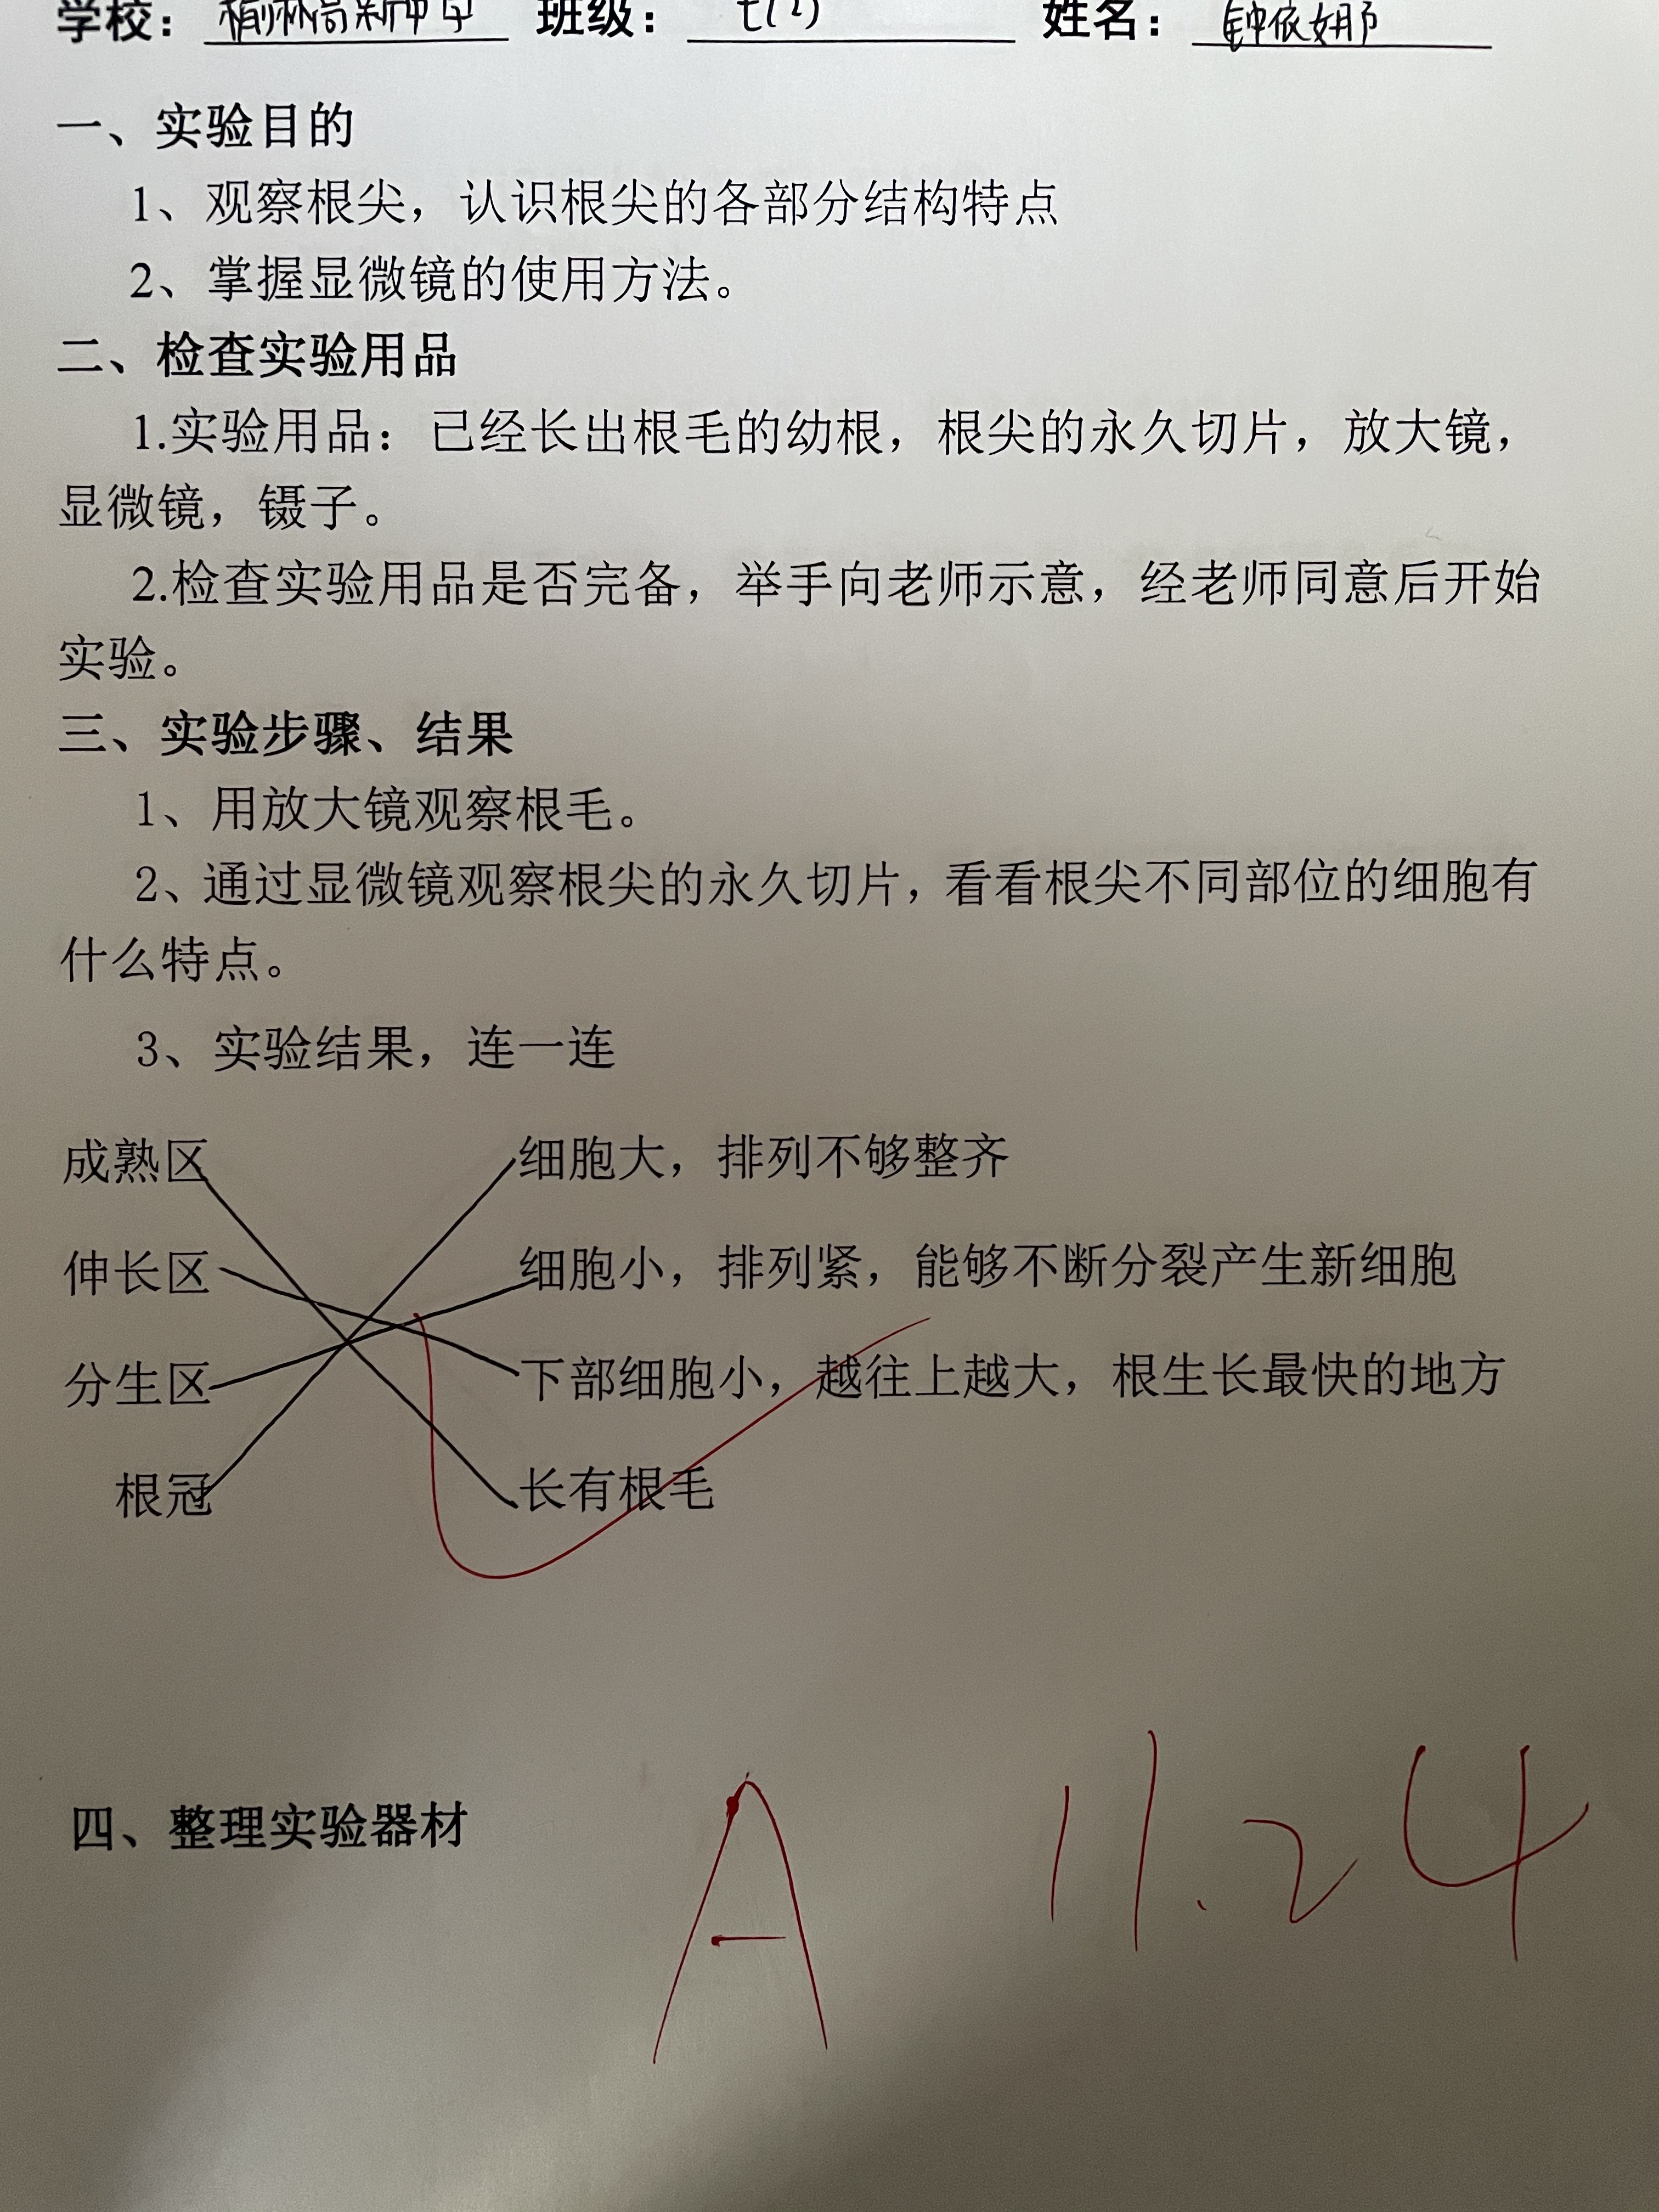 学校：榆林高新中学 班级：七(2) 姓名：钟依娜
一、实验目的
1、观察根尖，认识根尖的各部分结构特点
2、掌握显微镜的使用方法。
二、检查实验用品
1.实验用品：已经长出根毛的幼根，根尖的永久切片，放大镜，
显微镜，镊子。
2.检查实验用品是否完备，举手向老师示意，经老师同意后开始
实验。
三、实验步骤、结果
1、用放大镜观察根毛。
2、通过显微镜观察根尖的永久切片，看看根尖不同部位的细胞有
什么特点。
3、实验结果，连一连
成熟区 细胞大，排列不够整齐
伸长区 细胞小，排列紧，能够不断分裂产生新细胞
分生区 下部细胞小，越往上越大，根生长最快的地方
根冠 长有根毛
四、整理实验器材 A 11.24